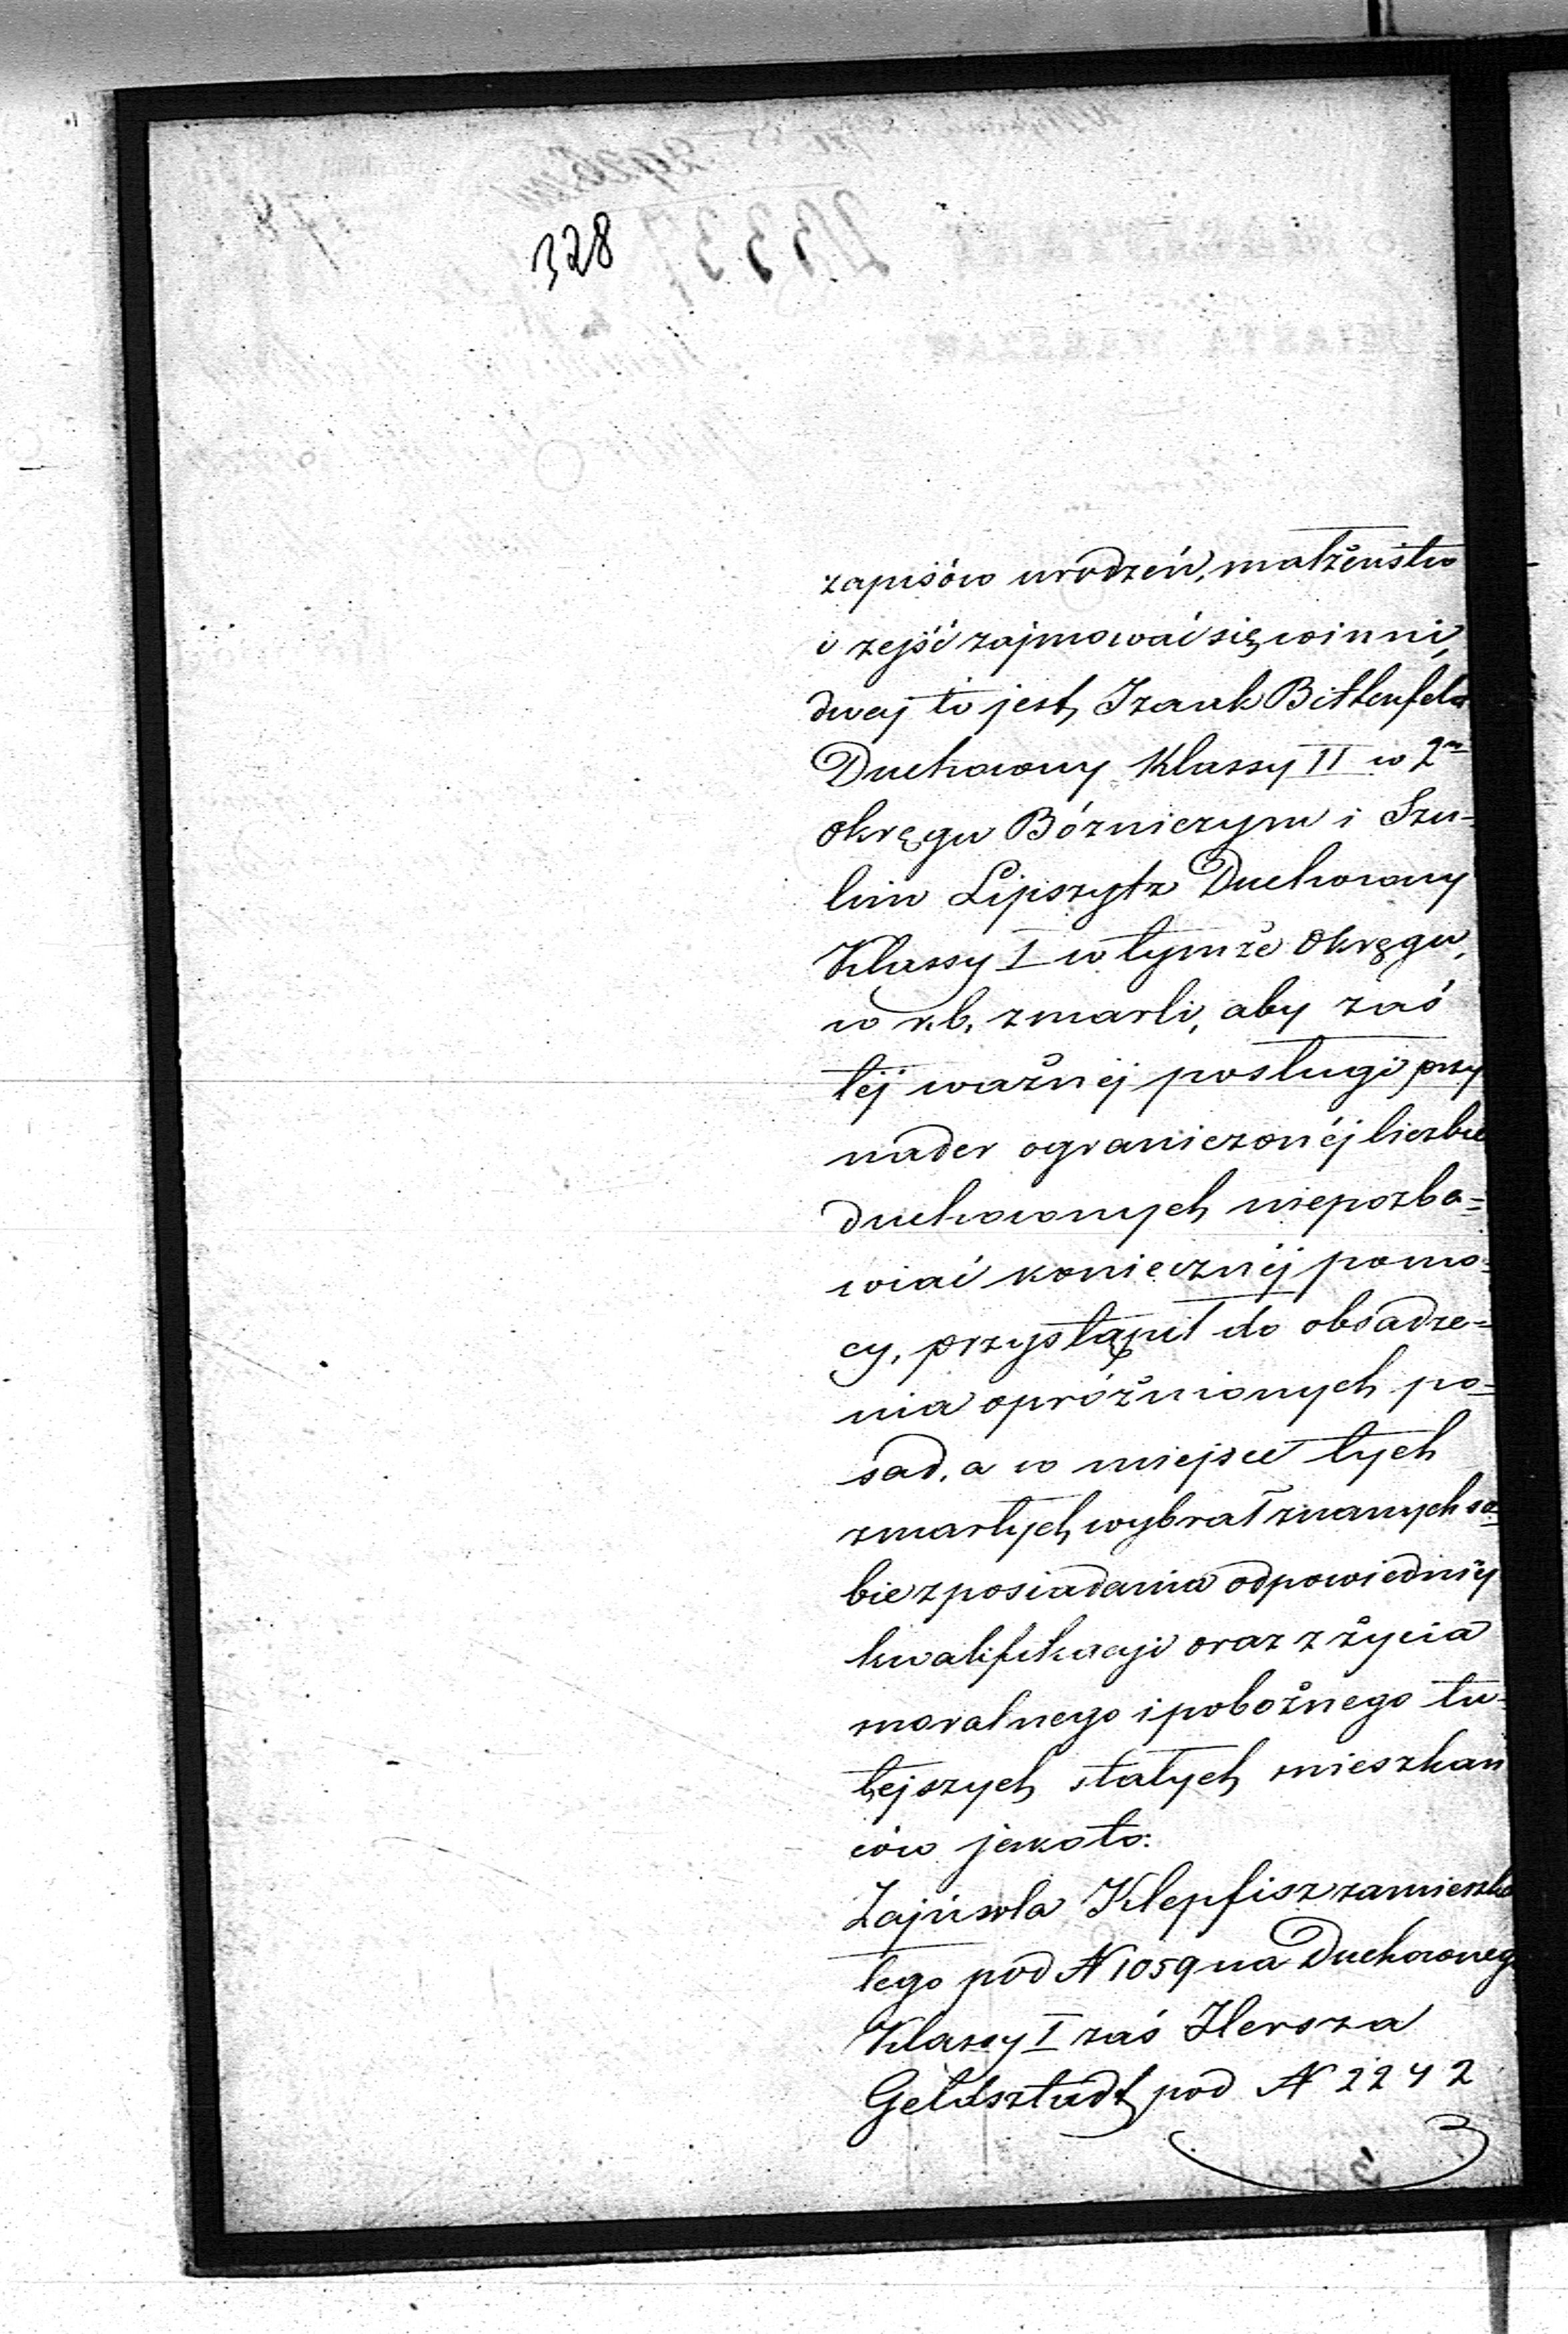 328
zapisów urodzeń, małżeństw
i zejść zajmować się winni,
dwaj to jest, Izaak Bittenfeld
Duchowny Klassy II w 2m
okręgu Bóżniczym i Szu-
lim Lipszytz Duchowny
Klassy I w tymże Okręgu,
w r.b. zmarli, aby zaś
téj ważnéj posługi przy
nader ograniczonéj liczbie
duchownych niepozba-
wiać koniecznéj pomo-
cy, przystąpił do obsadze-
nia opróżnionych po-
sad, a w miejsce tych
zmarłych wybrał znanych so-
bie z posiadania odpowiedniéj
kwalifikacji oraz z życia
moralnego i pobożnego tu-
tejszych stałych mieszkań
ców jakoto:
Klepfisz zamieszka
łego pod N 1059 na Duchownego
Klassy I zaś Hersza
Geldsztadt pod N 2242